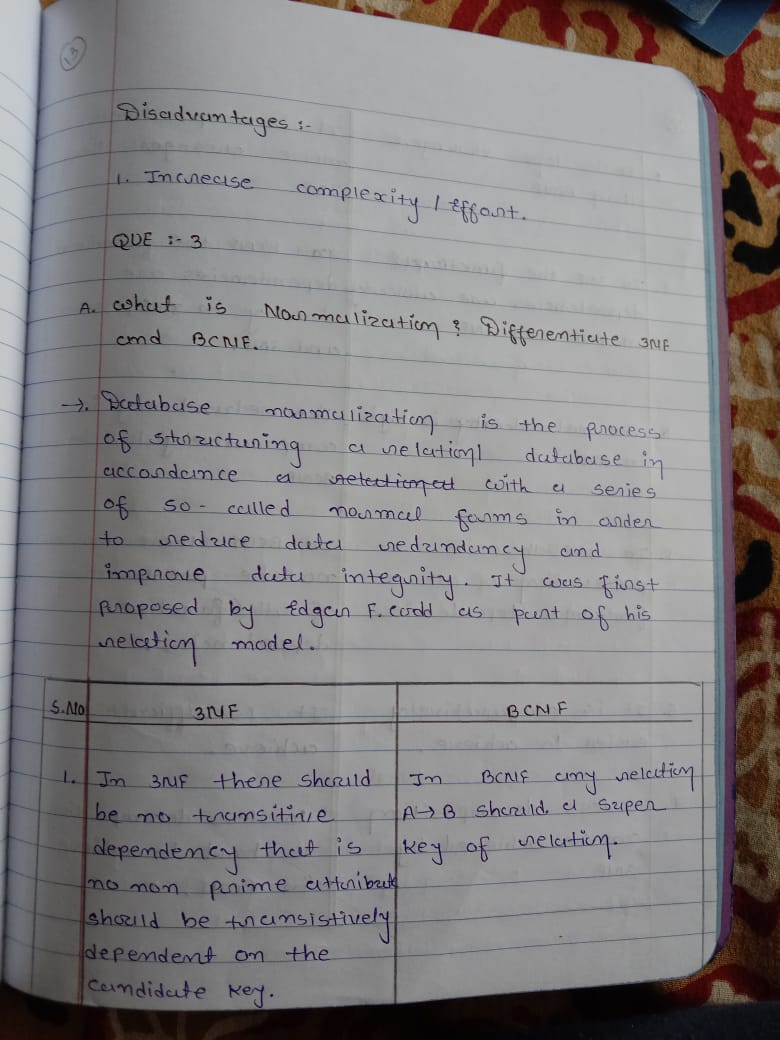 13
Disadvantages :-
1. Increase complexity / Effort.
QUE :- 3
A. What is Normalization ? Differentiate 3NF
and BCNF.
→. Database normalization is the process
of structuring a relationl database in
accordance a relectioned with a series
of so-called normal forms in order
to reduce data redundancy and
improve data integrity. It was first
proposed by Edgar F. codd as part of his
relation model.
S.NO 3NF BCNF
1. In 3NF there should In BCNF any relation
be no transitive A→B should a super
dependency that is key of relation.
no non prime attribute
should be transistively
dependent on the
candidate key.